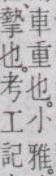 車重也。小雅
摯也。考工記